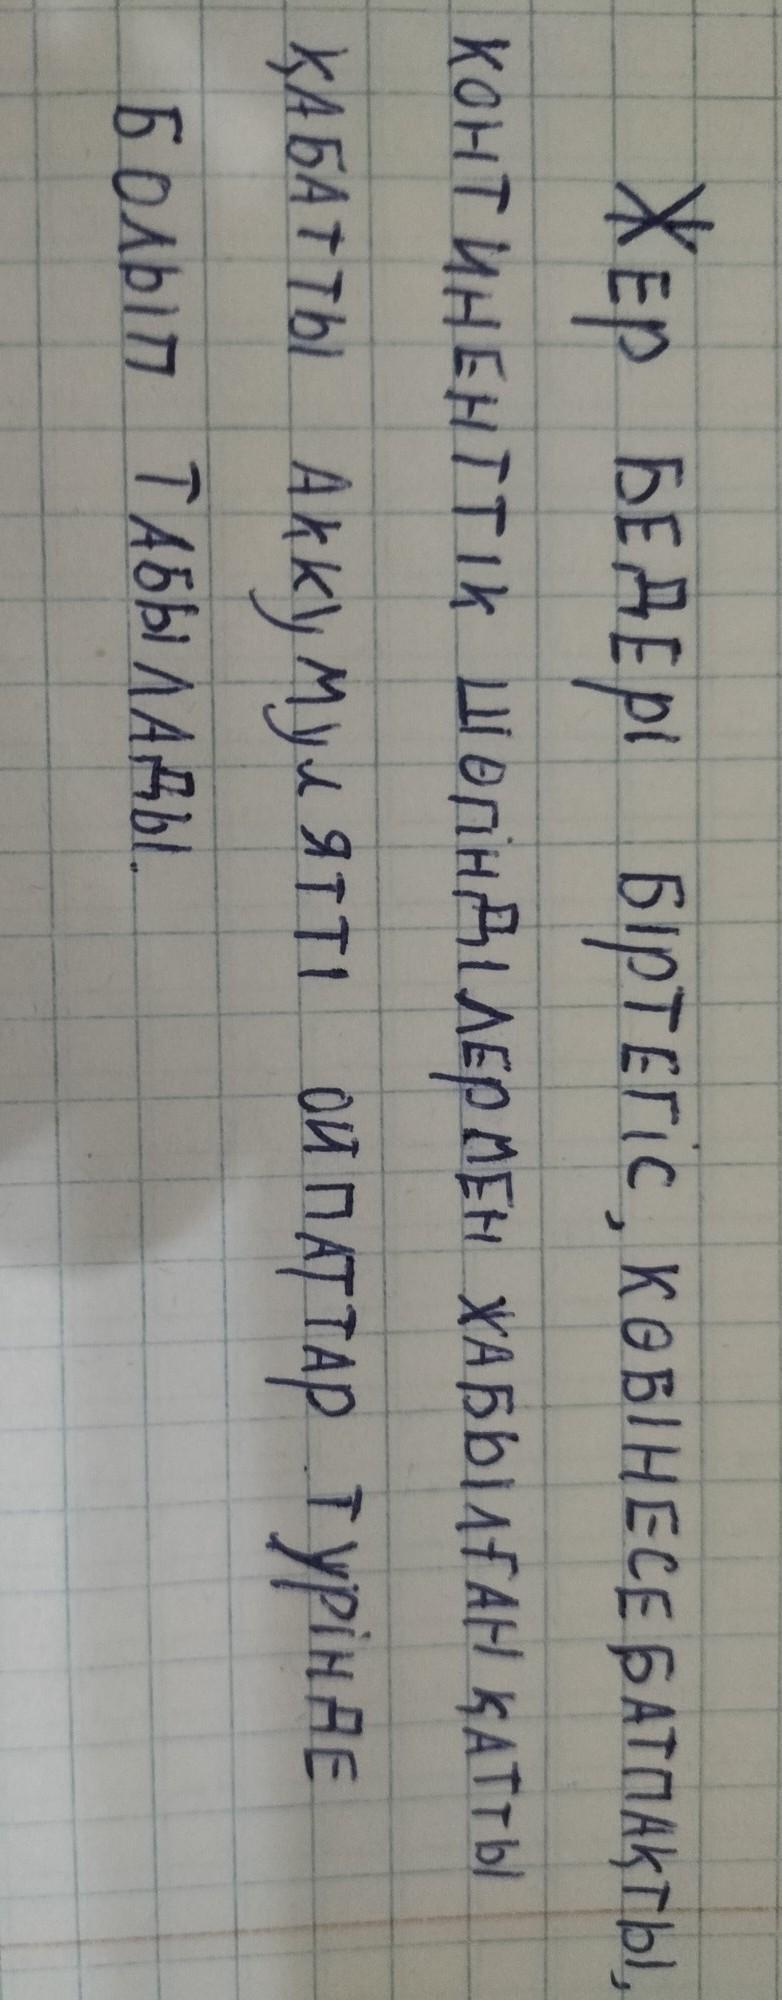 ЖЕР БЕДЕРІ БІРТЕГІС, КӨБІНЕСЕ БАТПАҚТЫ,
КОНТИНЕНТТІК ШӨГІНДІЛЕРМЕН ЖАБЫЛҒАН ҚАТТЫ
ҚАБАТТЫ АККУМУЛЯТТІ ОЙПАТТАР ТҮРІНДЕ
БОЛЫП ТАБЫЛАДЫ.